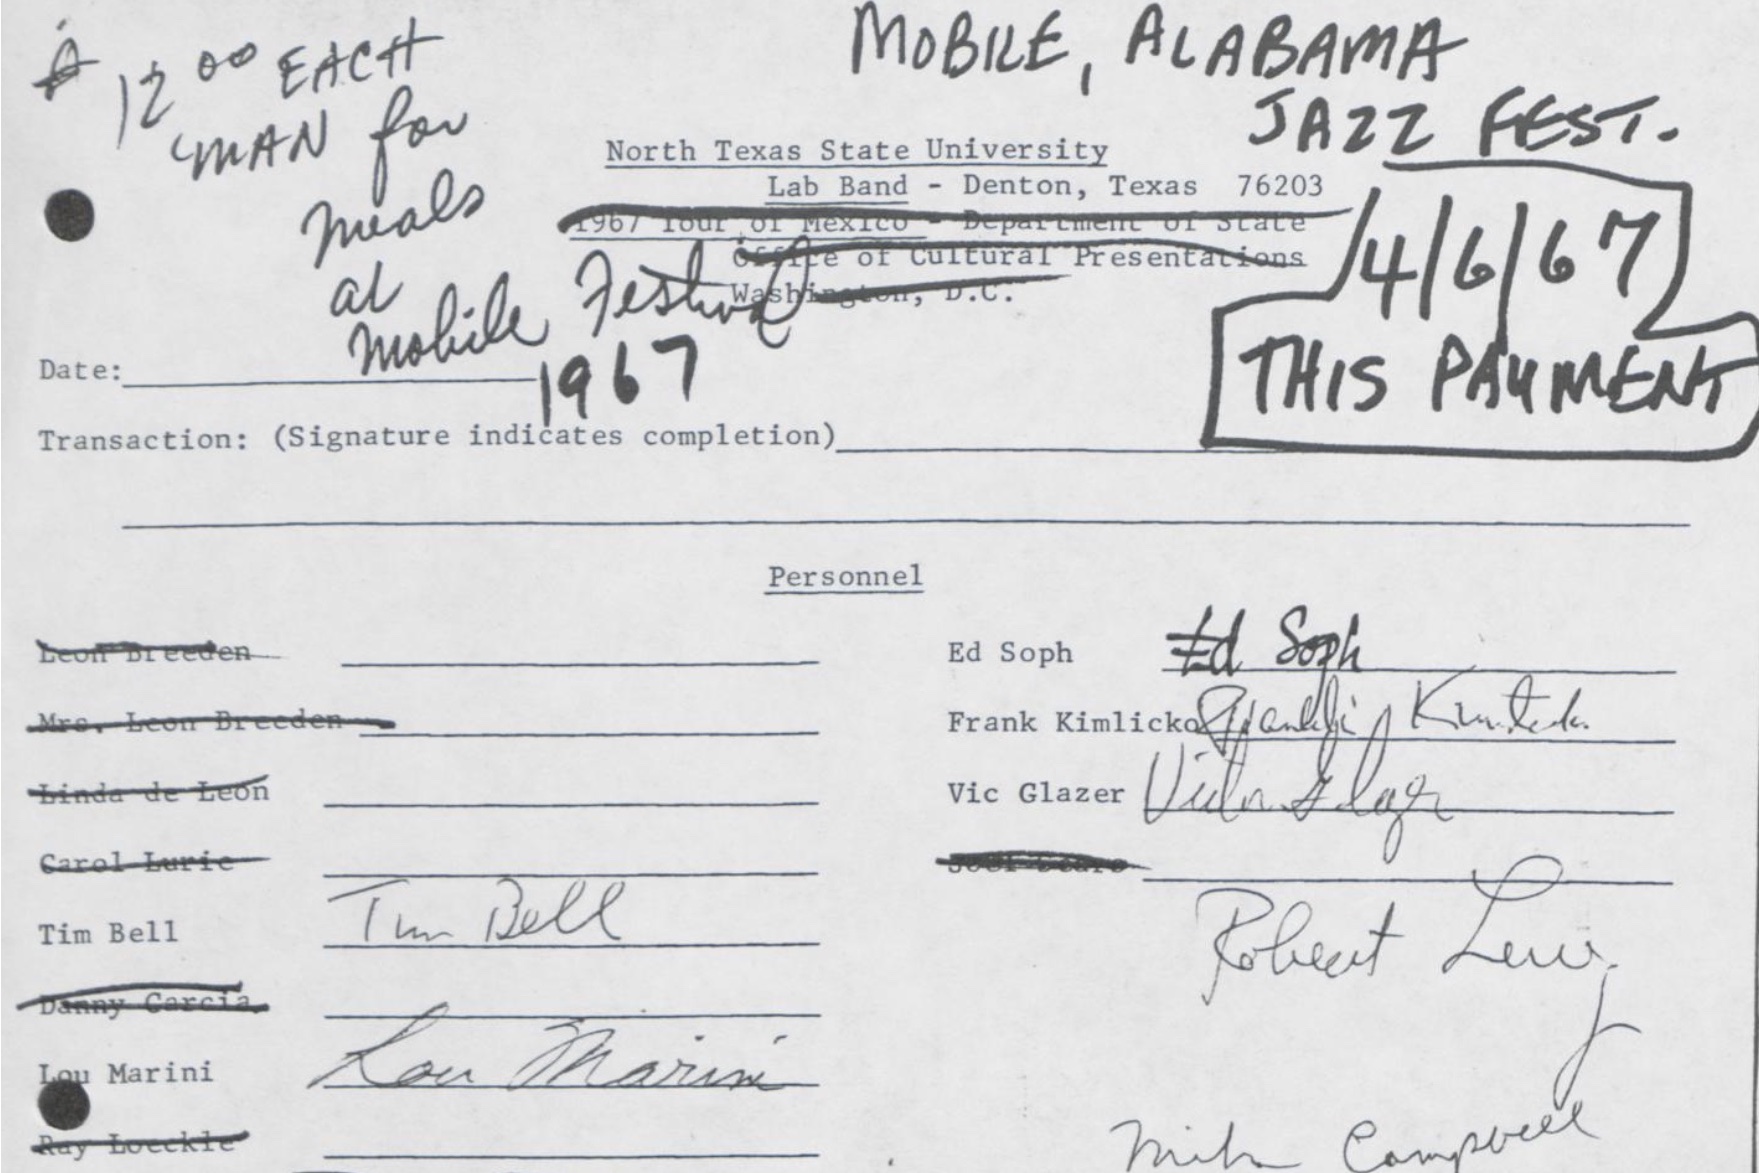 MOBILE, ALABAMA
JAZZ FEST.
4/6/67
THIS PAYMENT
$12.00 EACH
MAN for
meals
at
Mobile Festival
1967
North Texas State University
Lab Band - Denton, Texas 76203
1967 Tour of Mexico - Department of State
Office of Cultural Presentations
Washington, D.C.
Date:
Transaction: (Signature indicates completion)
Personnel
Leon Breeden
Mrs. Leon Breeden
Linda de Leon
Carol Lurie
Tim Bell Tim Bell
Danny Garcia
Lou Marini Lou Marini
Ray Loeckle
Ed Soph Ed Soph
Frank Kimlicko Kimlicko
Vic Glazer Victor Glazer
Robert Levy
Mike Campbell